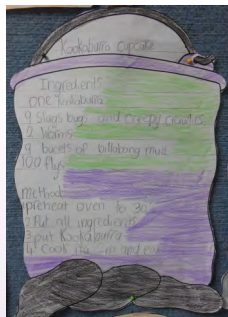 Kookaburra cupcake
Ingredients
one kookaburra
9 Slugs bugs and creepy
2 worms
9 bucets of billabong
100 flys
method
1 preheat oven to 30
2 Put all ingredients
3 put Kookaburra
4 Cook